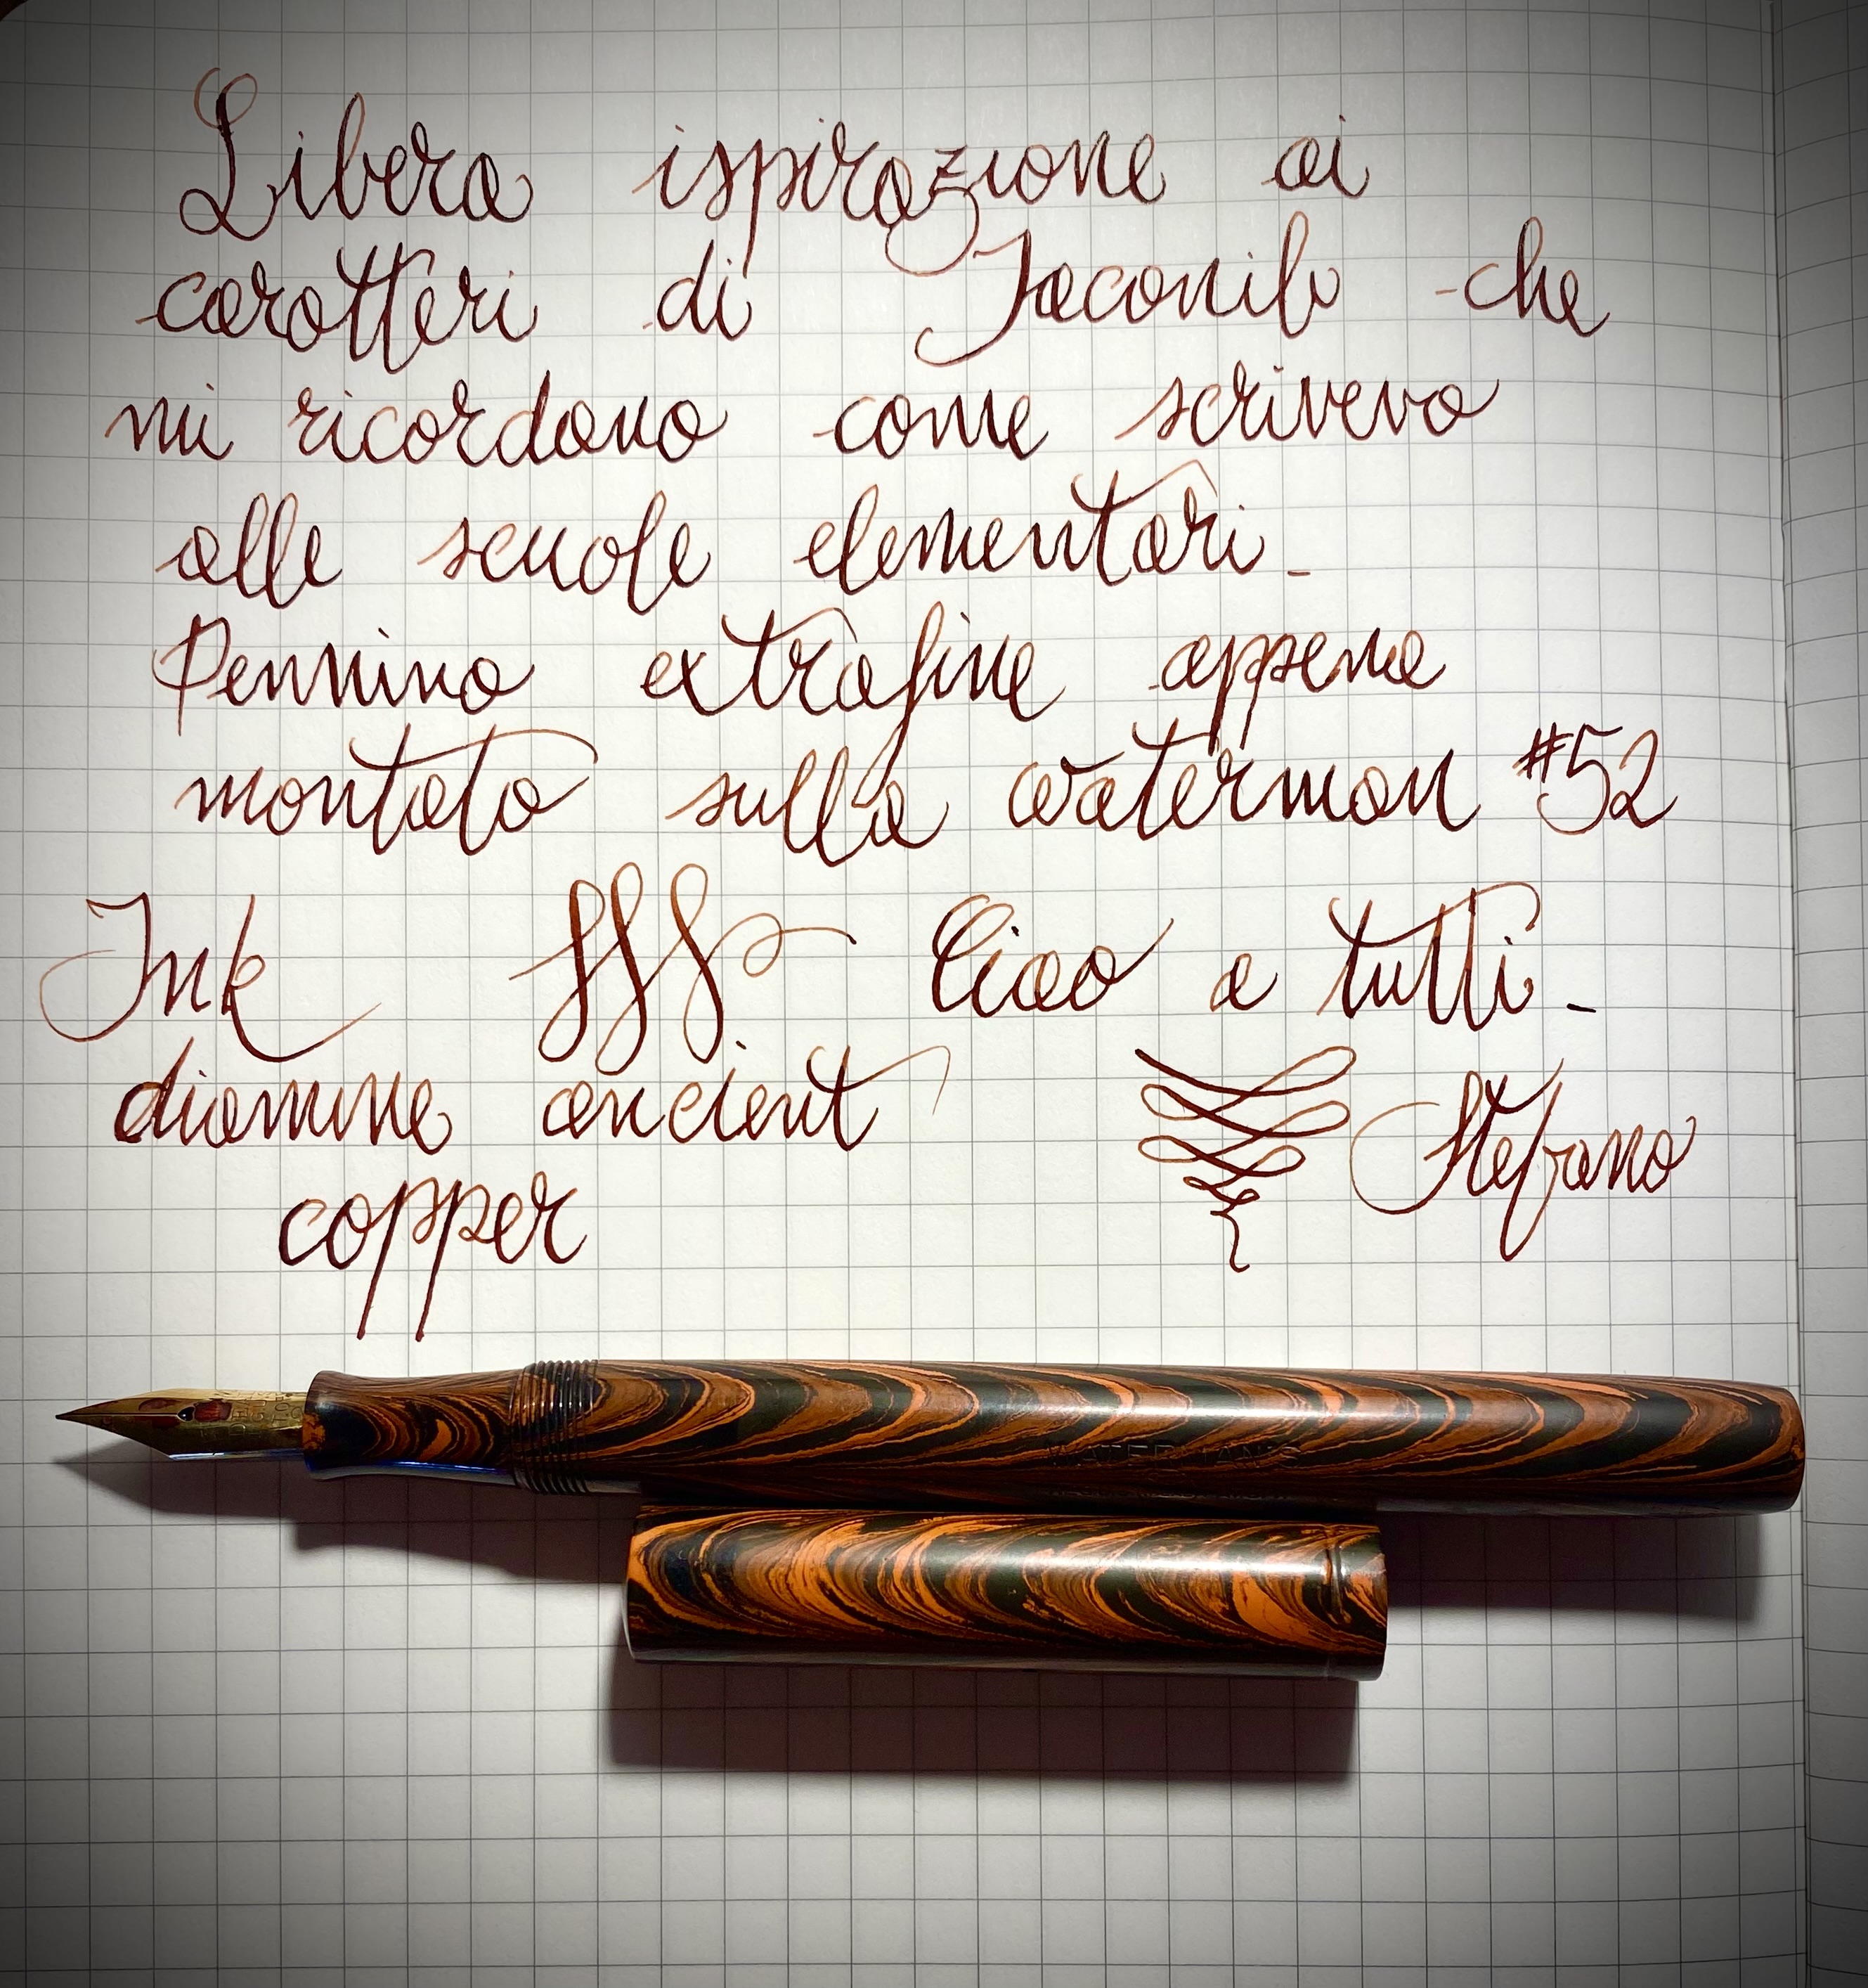 Libera ispirazione ai
caratteri di Jaconib che
mi ricordano come scrivevo
alle scuole elementari.
Pennino extrafine appena
montato sulla waterman #52
Ink
Ciao a tutti.
diamine ancient
copper
Stefano
WATERMAN'S